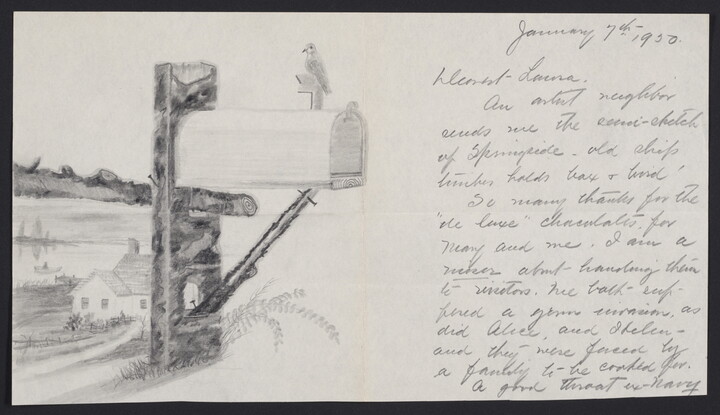 January 7th, 1930.
Dearest Laura.
An artist neighbor
sends me the semi-sketch
of Springside - old ship's
timber holds box & bird!
So many thanks for the
"de luxe" chocolates, for
Mary and me. I am a
miser about handing them
to visitors. We both suf-
fered a germ invasion, as
did Alice, and Helen -
and they were forced by
a family to be cooked for.
A good throat ex-Navy